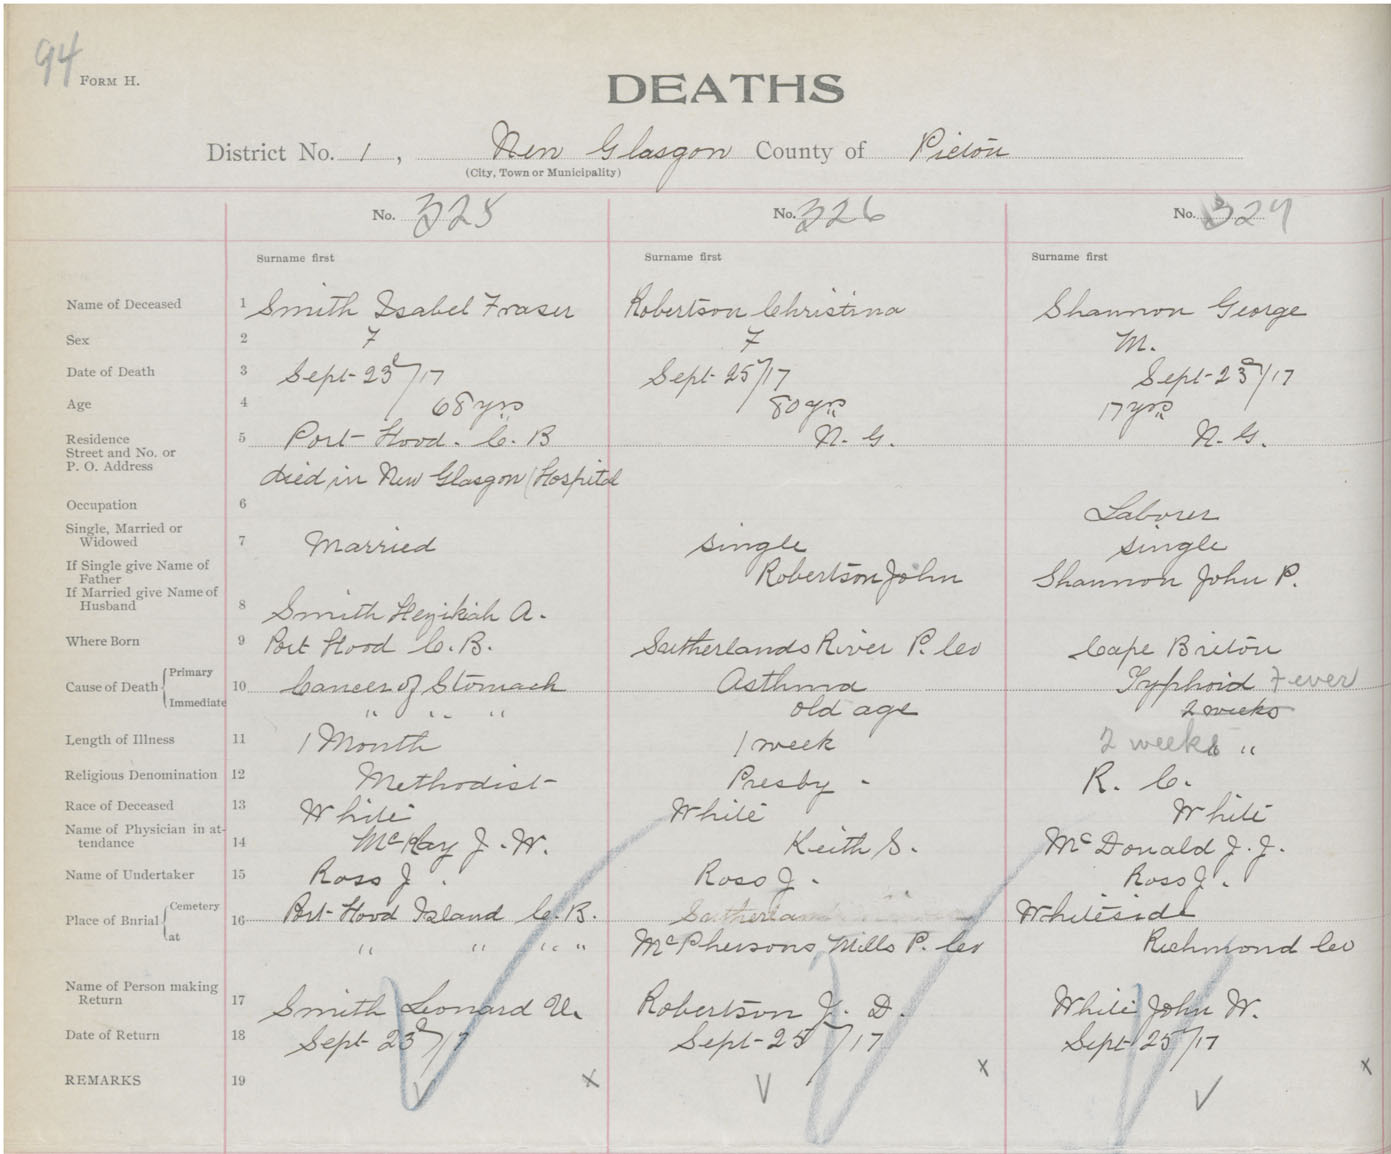 94
FORM H.
DEATHS
District No. 1, New Glasgow County of Pictou
(City, Town or Municipality)
No. 325 No. 326 No. 327
Surname first Surname first Surname first
Name of Deceased 1 Smith Isabel Fraser Robertson Christina Shannon George
Sex 2 F F M.
Date of Death 3 Sept 23d/17 Sept 25/17 Sept 23d/17
Age 4 68 yrs 80 yrs 17 yrs
Residence 5 Port Hood. C. B N. G. N. G.
Street and No. or
P. O. Address
died in New Glasgow (Hospital
Occupation 6 Laborer
Single, Married or
Widowed 7 Married Single Single
If Single give Name of
Father Robertson John Shannon John P.
If Married give Name of
Husband 8 Smith Hezikiah A.
Where Born 9 Port Hood C. B. Sutherlands River P. Co Cape Briton
Cause of Death { Primary 10 Cancer of Stomach Asthma Typhoid Fever
Immediate " " " old age 2 weeks
Length of Illness 11 1 Month 1 week 2 weeks "
Religious Denomination 12 Methodist Presby - R. C.
Race of Deceased 13 White White White
Name of Physician in at-
tendance 14 McKay J. W. Keith S. McDonald J. J.
Name of Undertaker 15 Ross J. Ross J. Ross J.
Place of Burial { Cemetery 16 Port Hood Island C. B. Whiteside
at " " " " McPhersons Mills P. Co Richmond Co
Name of Person making
Return 17 Smith Leonard Robertson J. D. White John W.
Date of Return 18 Sept 23d/17 Sept 25/17 Sept 25/17
REMARKS 19 x x x